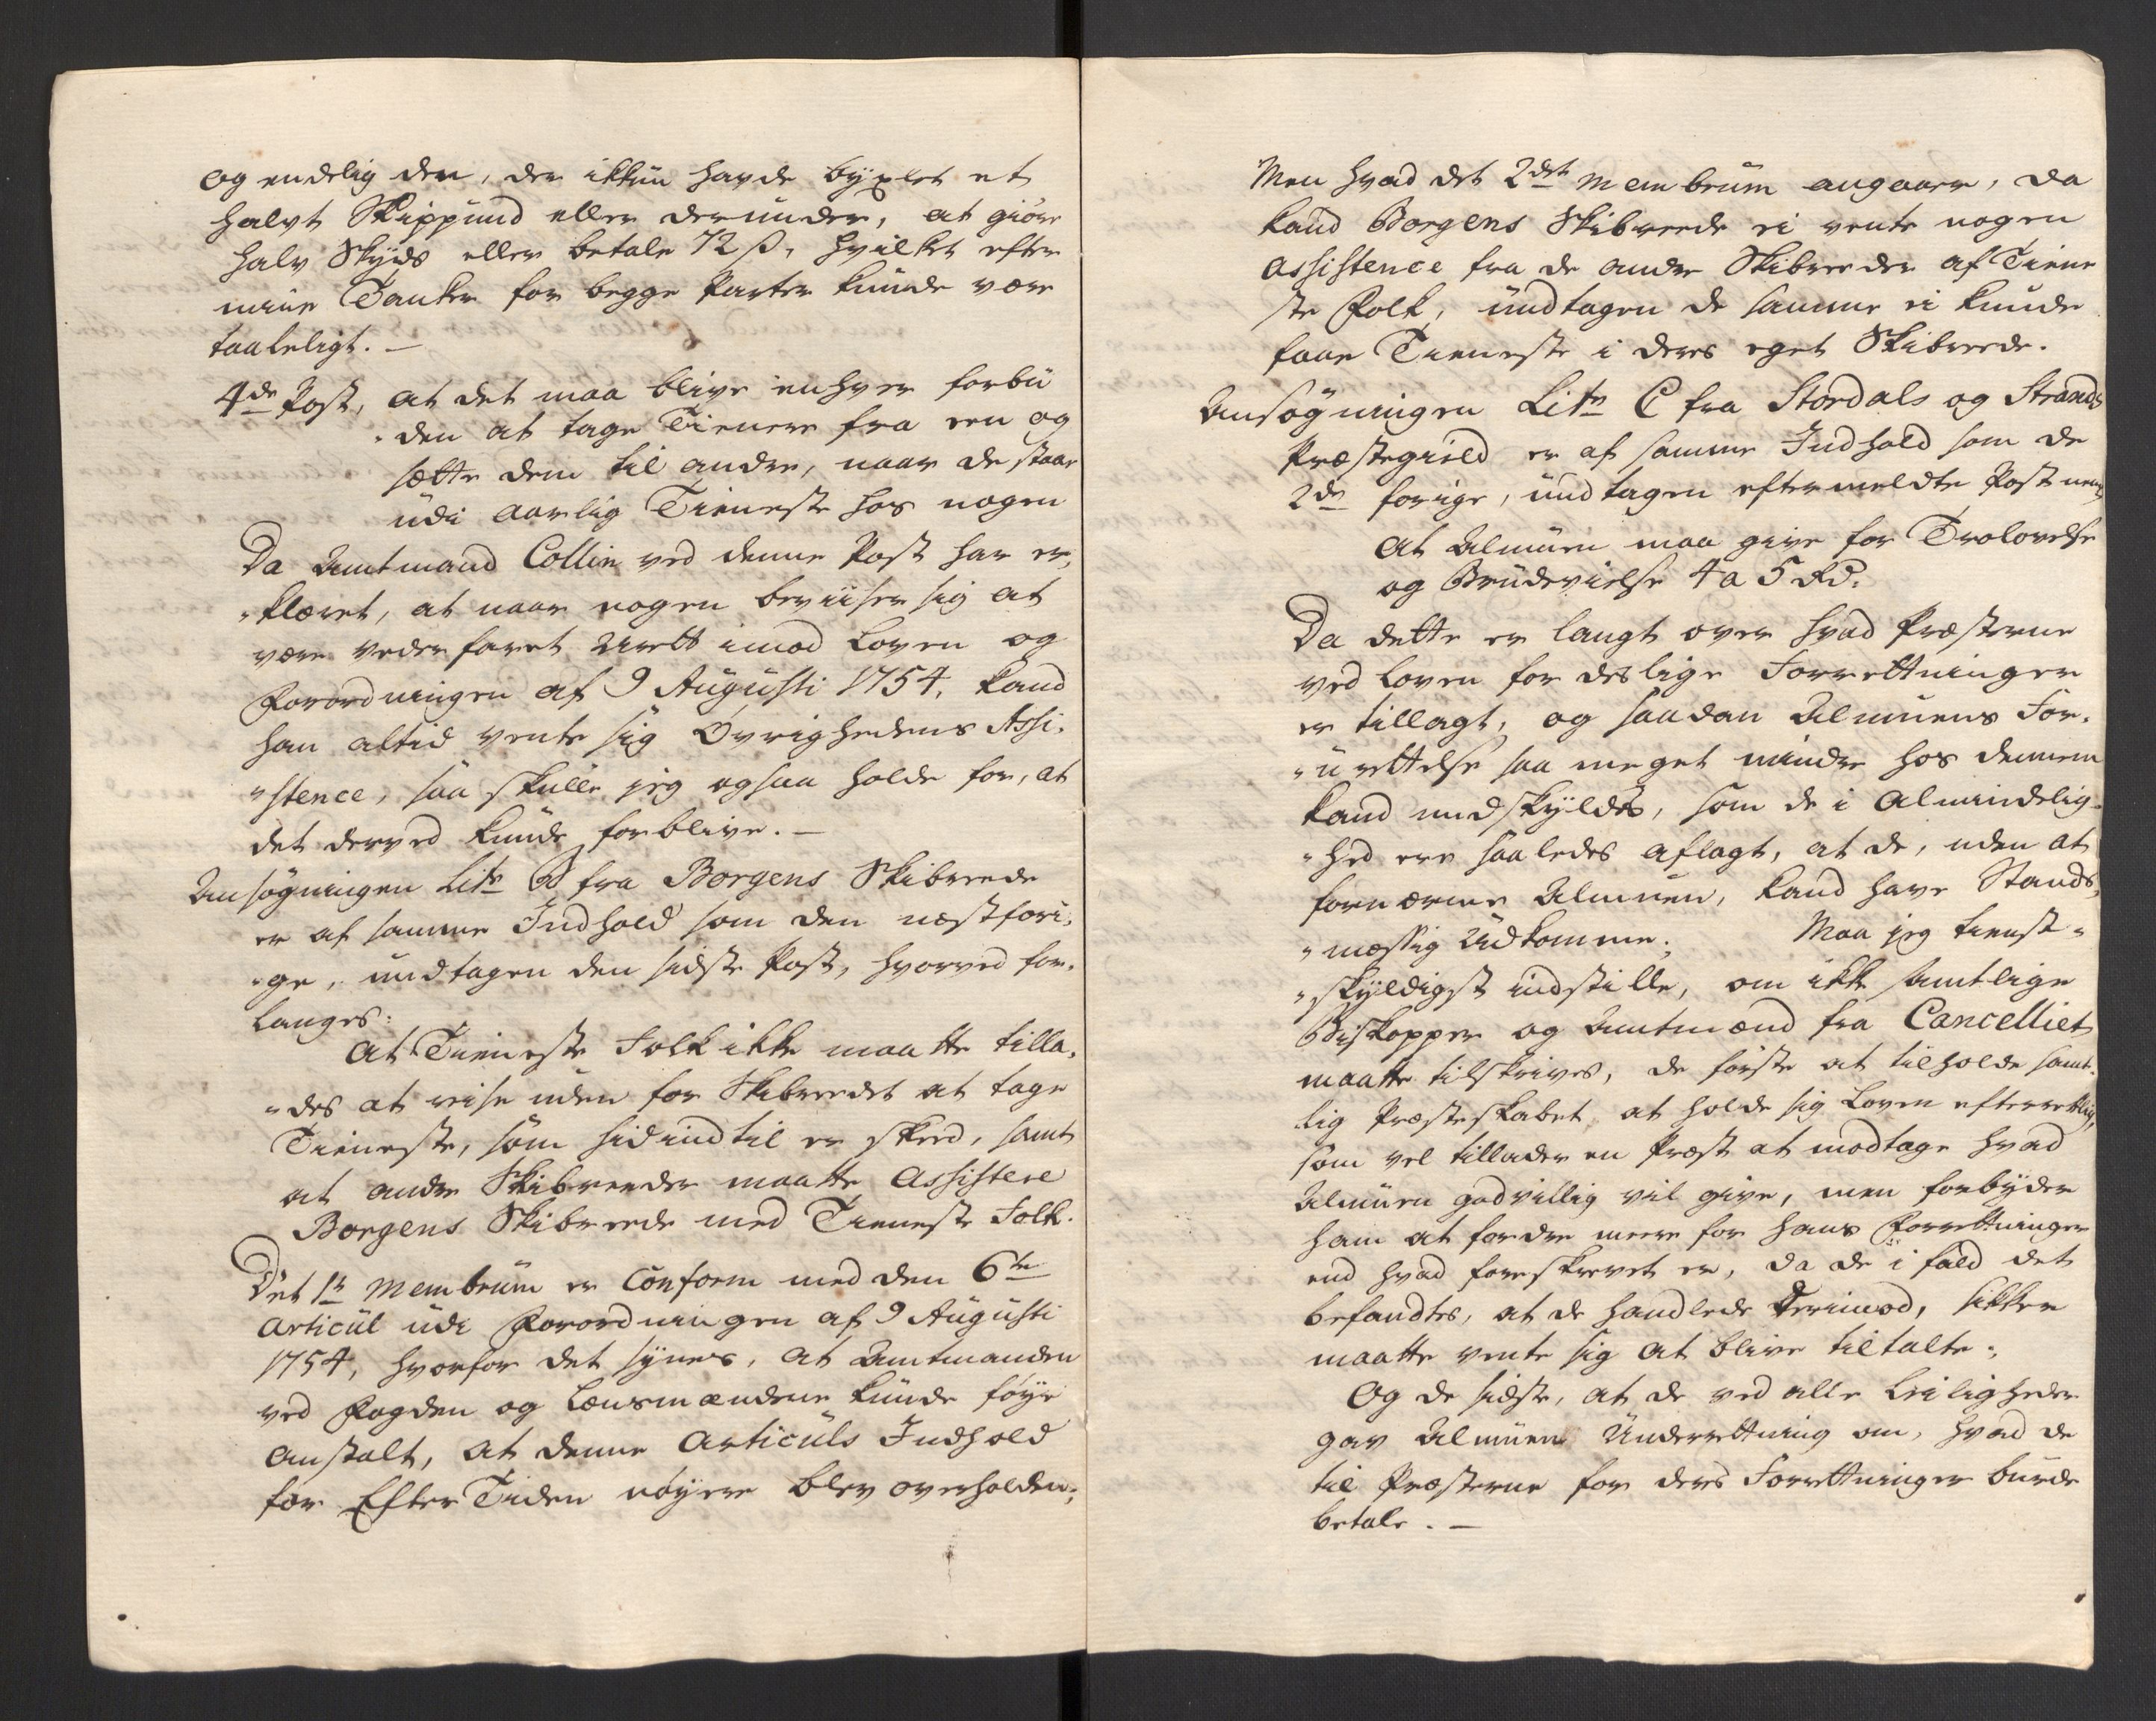 og endelig den, der ikkun havde byxlet et
halvt Skippund eller derunder, at giøre
halv Skyds eller betale 72 ß, hvilket efter
miine Tanker for begge Parter kunde være
taaleligt. —
4de Post, at det maa blive enhver forbü
„den at tage Tienere fra een og
sætte dem til andre, naar de staar
udi aarlig Tieneste hos nogen
Da Amtmand Collin ved denne Post har er„
„klæret, at naar nogen beviiser sig at
være vederfaret Urett imod Loven og
Forordningen af 9 Augusti 1754, kand
han altid vente sig Øvrighedens Assi„
„stence, saa skulle jeg ogsaa holde for, at
det derved kunde forblive. —
Ansøgningen Litr B fra Borgens Skibreede
er af samme Indhold som den næstfori„
„ge, undtagen den sidste Post, hvorved for„
langes:
At Tieneste Folk ikke maatte tilla„
„des at reise uden for Skibreedet at tage
Tieneste, som hidindtil er skeed, samt
at andre Skibreeder maatte Assistere
Borgens Skibreede med Tieneste Folk.
Det 1te Membrum er Conform med den 6te
Articul udi Forordningen af 9 Augusti
1754, hvorfor det synes, at Amtmanden
ved Fogden og Lensmændene kunde føye
Anstalt, at denne Articuls Indhold
for Efter Tiden nøyere blev overholden;
Men hvad det 2det Membrum angaaer, da
kand Borgens Skibreede ei vente nogen
Assistence fra de andre Skibreeder af Tiene
ste Folk, undtagen de samme ei kunde
faae Tieneste i deres eget Skibreede.
Ansøgningen Litr C fra Stordals og Strands
Præstegield er af samme Indhold som de
2de forige, undtagen eftermeldte Post neml
At Almuen maa give for Trolovelse
og Brudevielse 4 a 5 Rd.
Da dette er langt over hvad Præsterne
ved Loven for deslige Forrettninger
er tillagt, og saadan Almuens For„
„urettelse saa meget mindre hos dennem
kand undskyldes, som de i Almindelig„
„hed ere saaledes aflagt, at de, uden at
fornærme Almuen, kand have Stands„
„mæssig Udkomme; Maa jeg tienst„
„skyldigst indstille, om ikke samtlige
Biskopper og Amtmænd fra Cancelliet
maatte tilskrives, de første at tilholde samt„
lig Præsteskabet at holde sig Loven efterrettlig,
som vel tillader en Præst at modtage hvad
Almuen godvillig vil give, men forbyder
ham at fordre meere for hans Forrettninger
end hvad foreskrevet er, da de i fald det
befandtes, at de handlede derimod, sikker
maatte vente sig at blive tiltalte;
Og de sidste, at de ved alle Leiligheder
gav Almuen Underrettning om, hvad de
til Præsterne for deres Forrettninger burde
betale. —